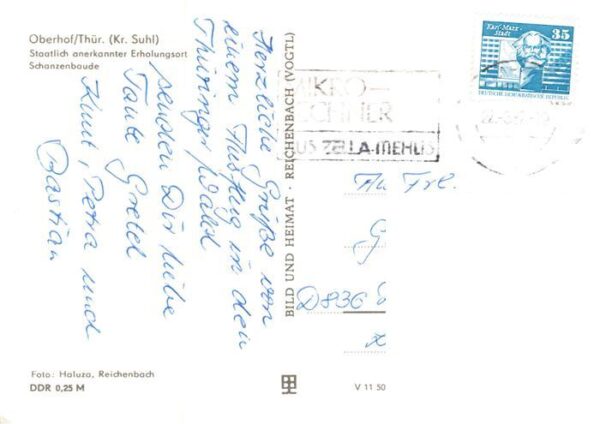 Oberhof/Thür. (Kr. Suhl)
Staatlich anerkannter Erholungsort
Schanzenbaude
Herzliche Grüße von
einem Ausflug in den
Thüringer Wald
senden Dir liebe
Tante Gretel
Knut, Petra und
Bastian
BILD UND HEIMAT · REICHENBACH (VOGTL)
MIKRO-
RECHNER
AUS ZELLA-MEHLIS
Karl-Marx-
Stadt
35
DEUTSCHE DEMOKRATISCHE REPUBLIK
An Frl.
G
D836
Foto: Haluza, Reichenbach
DDR 0,25 M
V 11 50